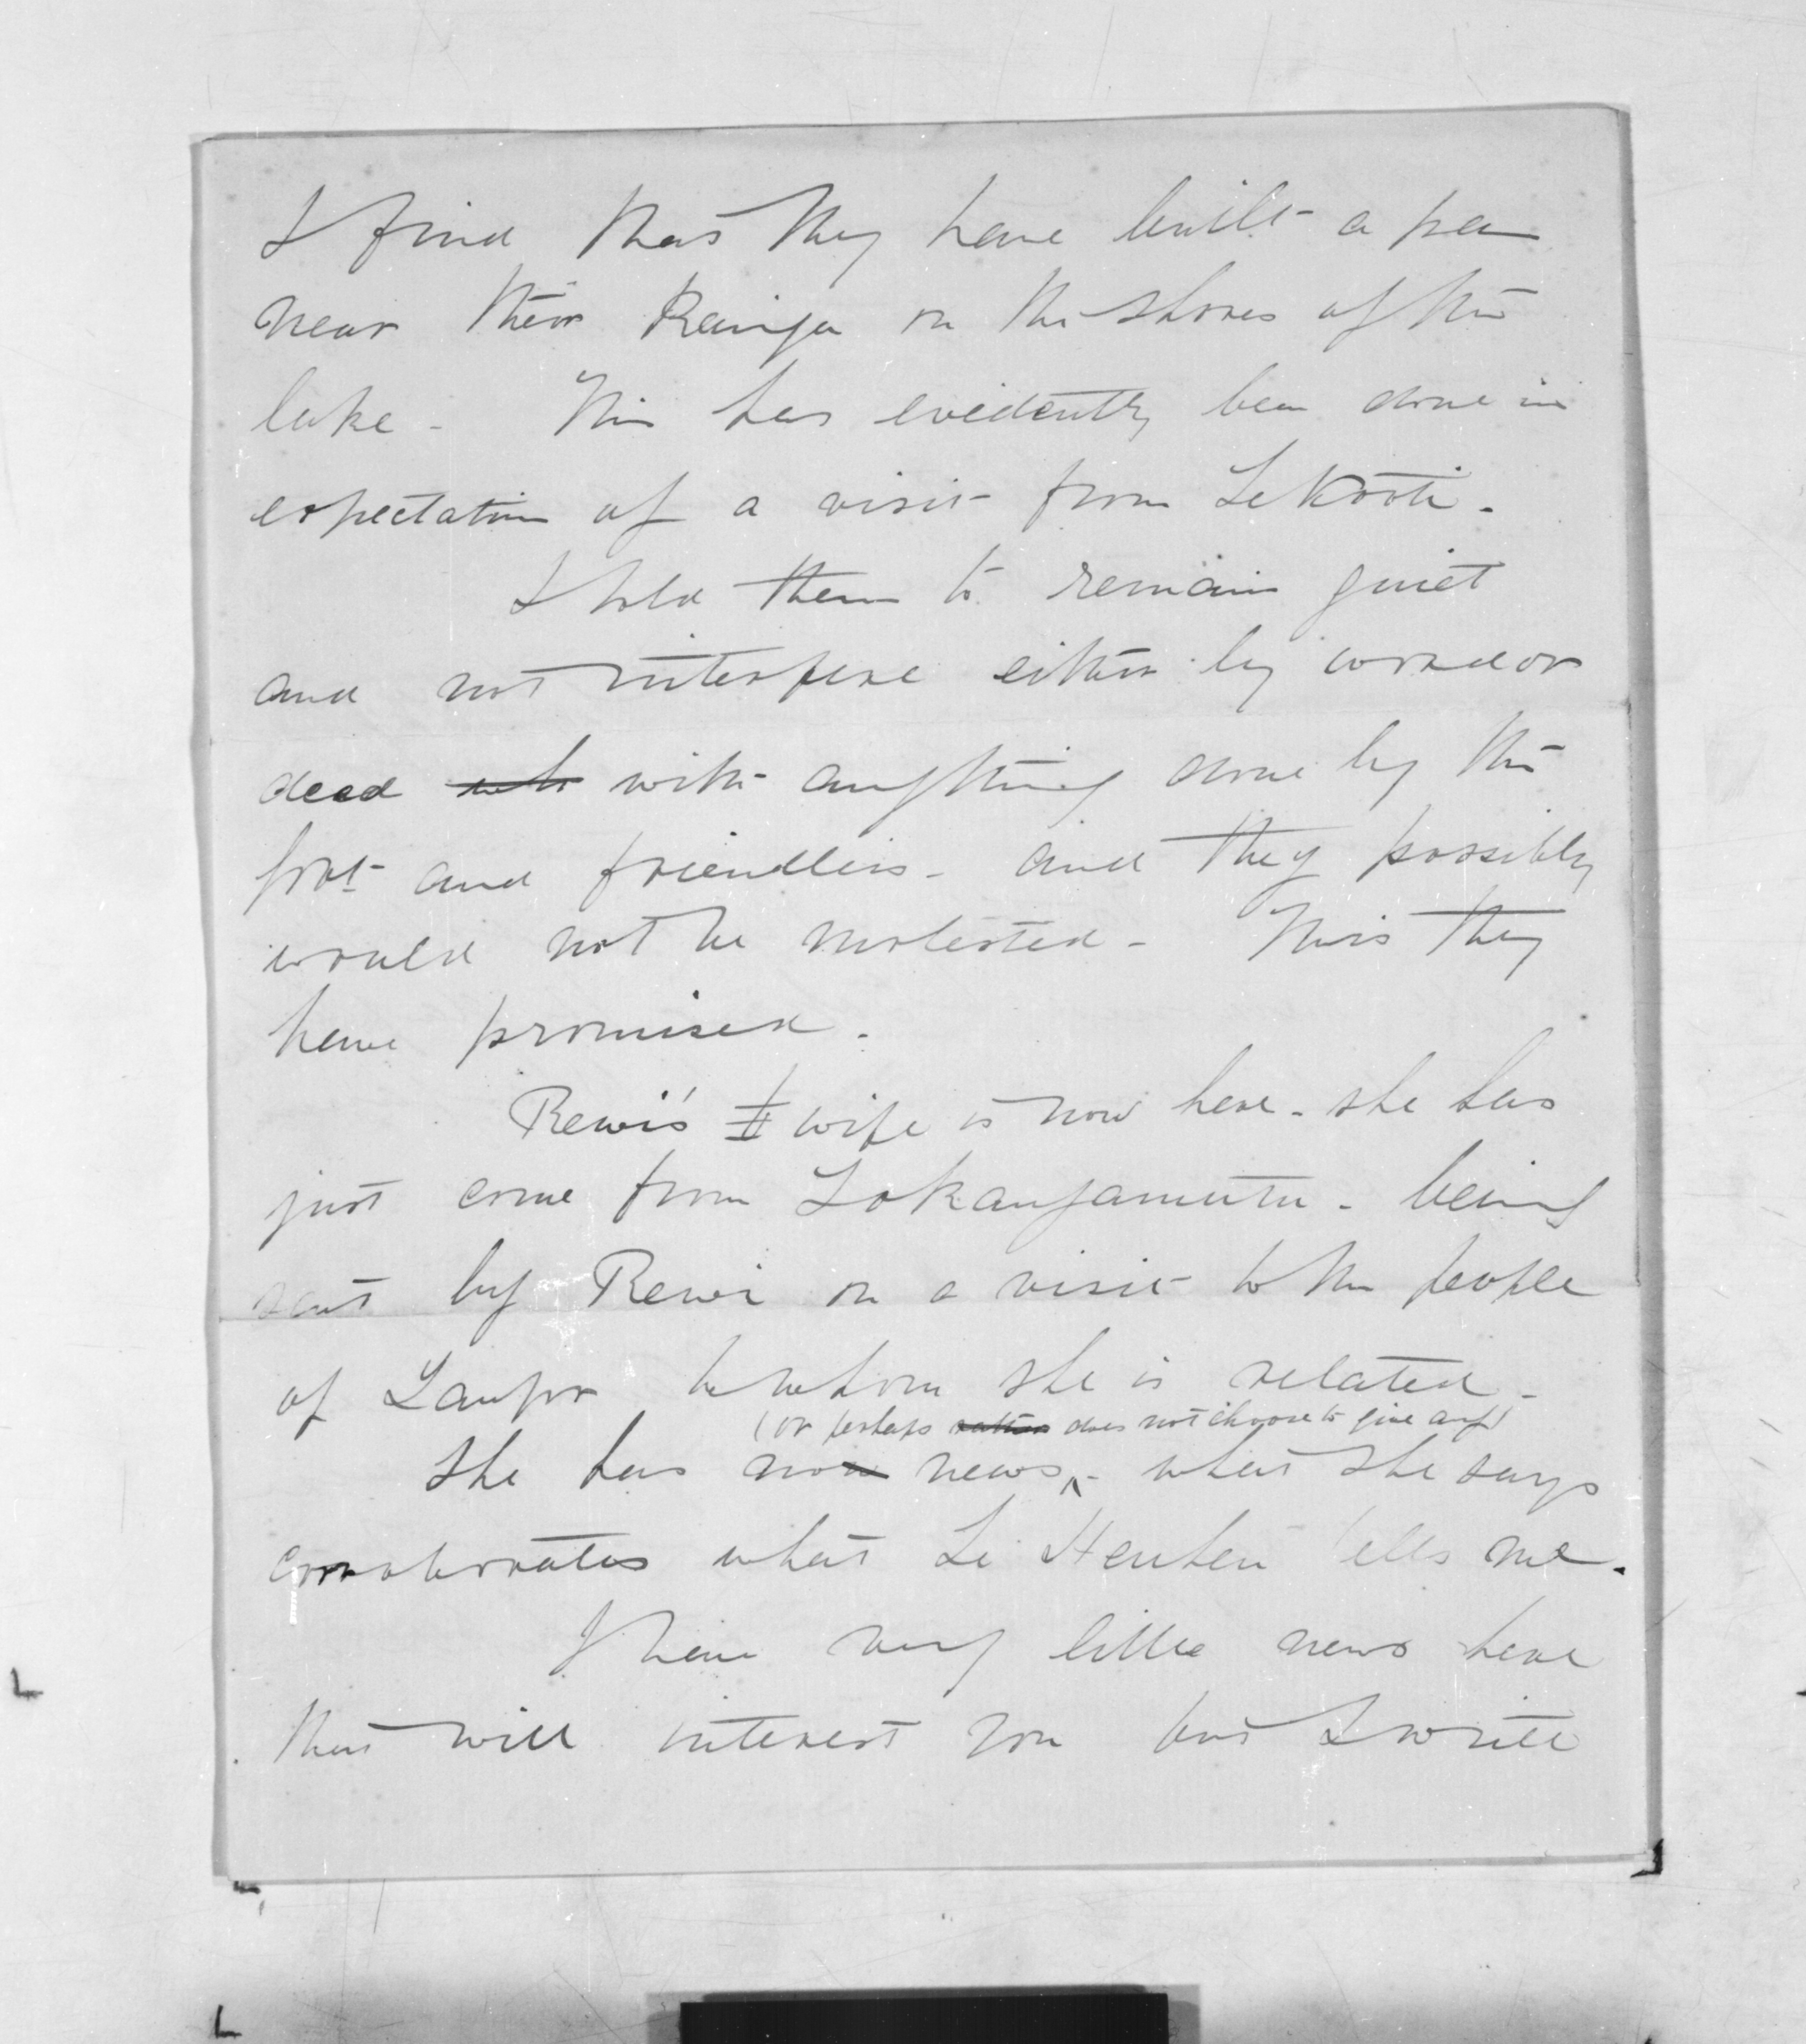 I find that they have built a pa
near their Kainga on the shores of the
lake - This has evidently been done in
expectation of a visit from Te Kooti -
I told them to remain quiet
and not interfere either by word or
deed with anything done by the
Govt and friendlies - and they possibly
would not be molested - This they
have promised -
Rewi's II wife is now here - she has
just come from Tokangamutu - being
sent by Rewi on a visit to the people
of Taupo to whom she is related -
(or perhaps rather does not choose to give any)
She has no news - what she says
corroborates what Te Heuheu tells me.
I have very little news here
that will interest you but I write